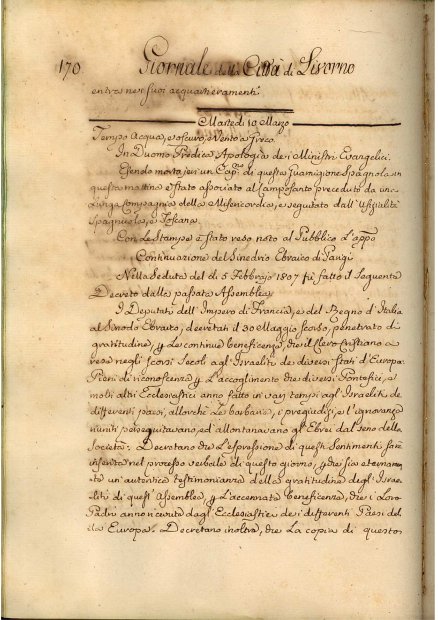 170 Giornale della Città di Livorno
entra ne' suoi acquartieramenti.
Martedì 10 Marzo
Tempo Acqua, e oscuro, e Vento a Greco.
In Duomo Predica Apologia de i Ministri Evangelici.
Essendo morto jeri un Cap.º di questa Guarnigione Spagnola in
questa mattina è stato associato al Camposanto preceduto da una
Lunga Compagnia della Misericordia, e seguitato dall'Ufizialità
Spagnuola, e Toscana.
Con le Stampe è stato reso noto al Pubblico l'app.º
Continuazione del Sinedrio Ebraico di Parigi
Nella Seduta del dì 5 Febbrajo 1807 fù fatto il Seguente
Decreto dalla passata Assemblea
I Deputati dell'Impero di Francia, e del Regno d'Italia
al Sinodo Ebraico, decretati il 30 Maggio scorso, penetrati di
gratitudine, p le continue beneficenze, che il Clero Cristiano a
reso negli scorsi Secoli agl'Israeliti de i diversi Stati d'Europa
Pieni di riconoscenza p L'accoglimento che diversi Pontefici, e
molti altri Ecclesiastici anno fatto in varj tempi agl'Israeliti de
differenti paesi, allorchè la barbarie, e pregiudizj, e l'ignoranza
riuniti perseguitavano, ed allontanavano gl'Ebrei dal seno della
Società: Decretano che l'espressione di questi Sentimenti sarà
inserita nel processo verbale di questo giorno, p che sia eternamen
te un'autentica testimonianza della gratitudine degl'Israe
liti di quest'Assemblea, p l'accennata beneficenza, che i Loro
Padri anno ricevuta dagl'Ecclesiastici de i differenti Paesi del
la Europa. Decretano inoltre, che la copia di questo